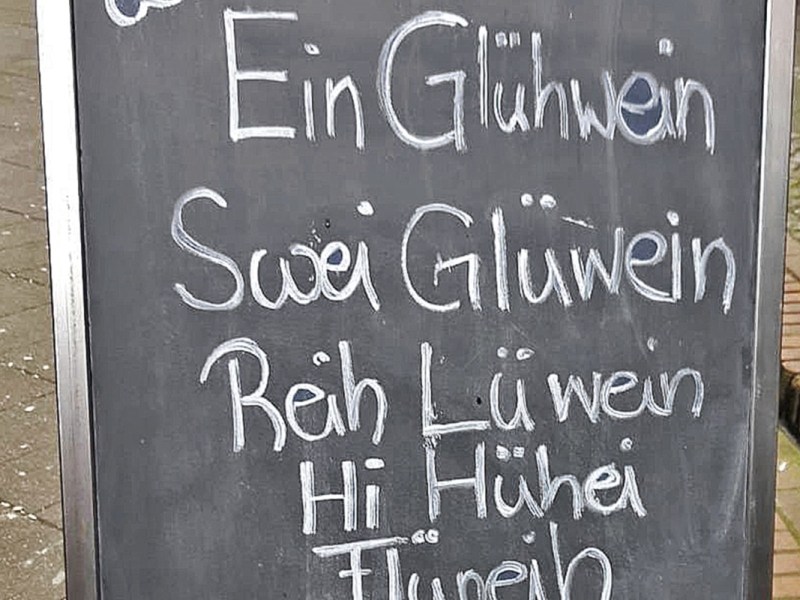 Ein Glühwein
Swei Glüwein
Reih Lüwein
Hi Hühei
Flüneih